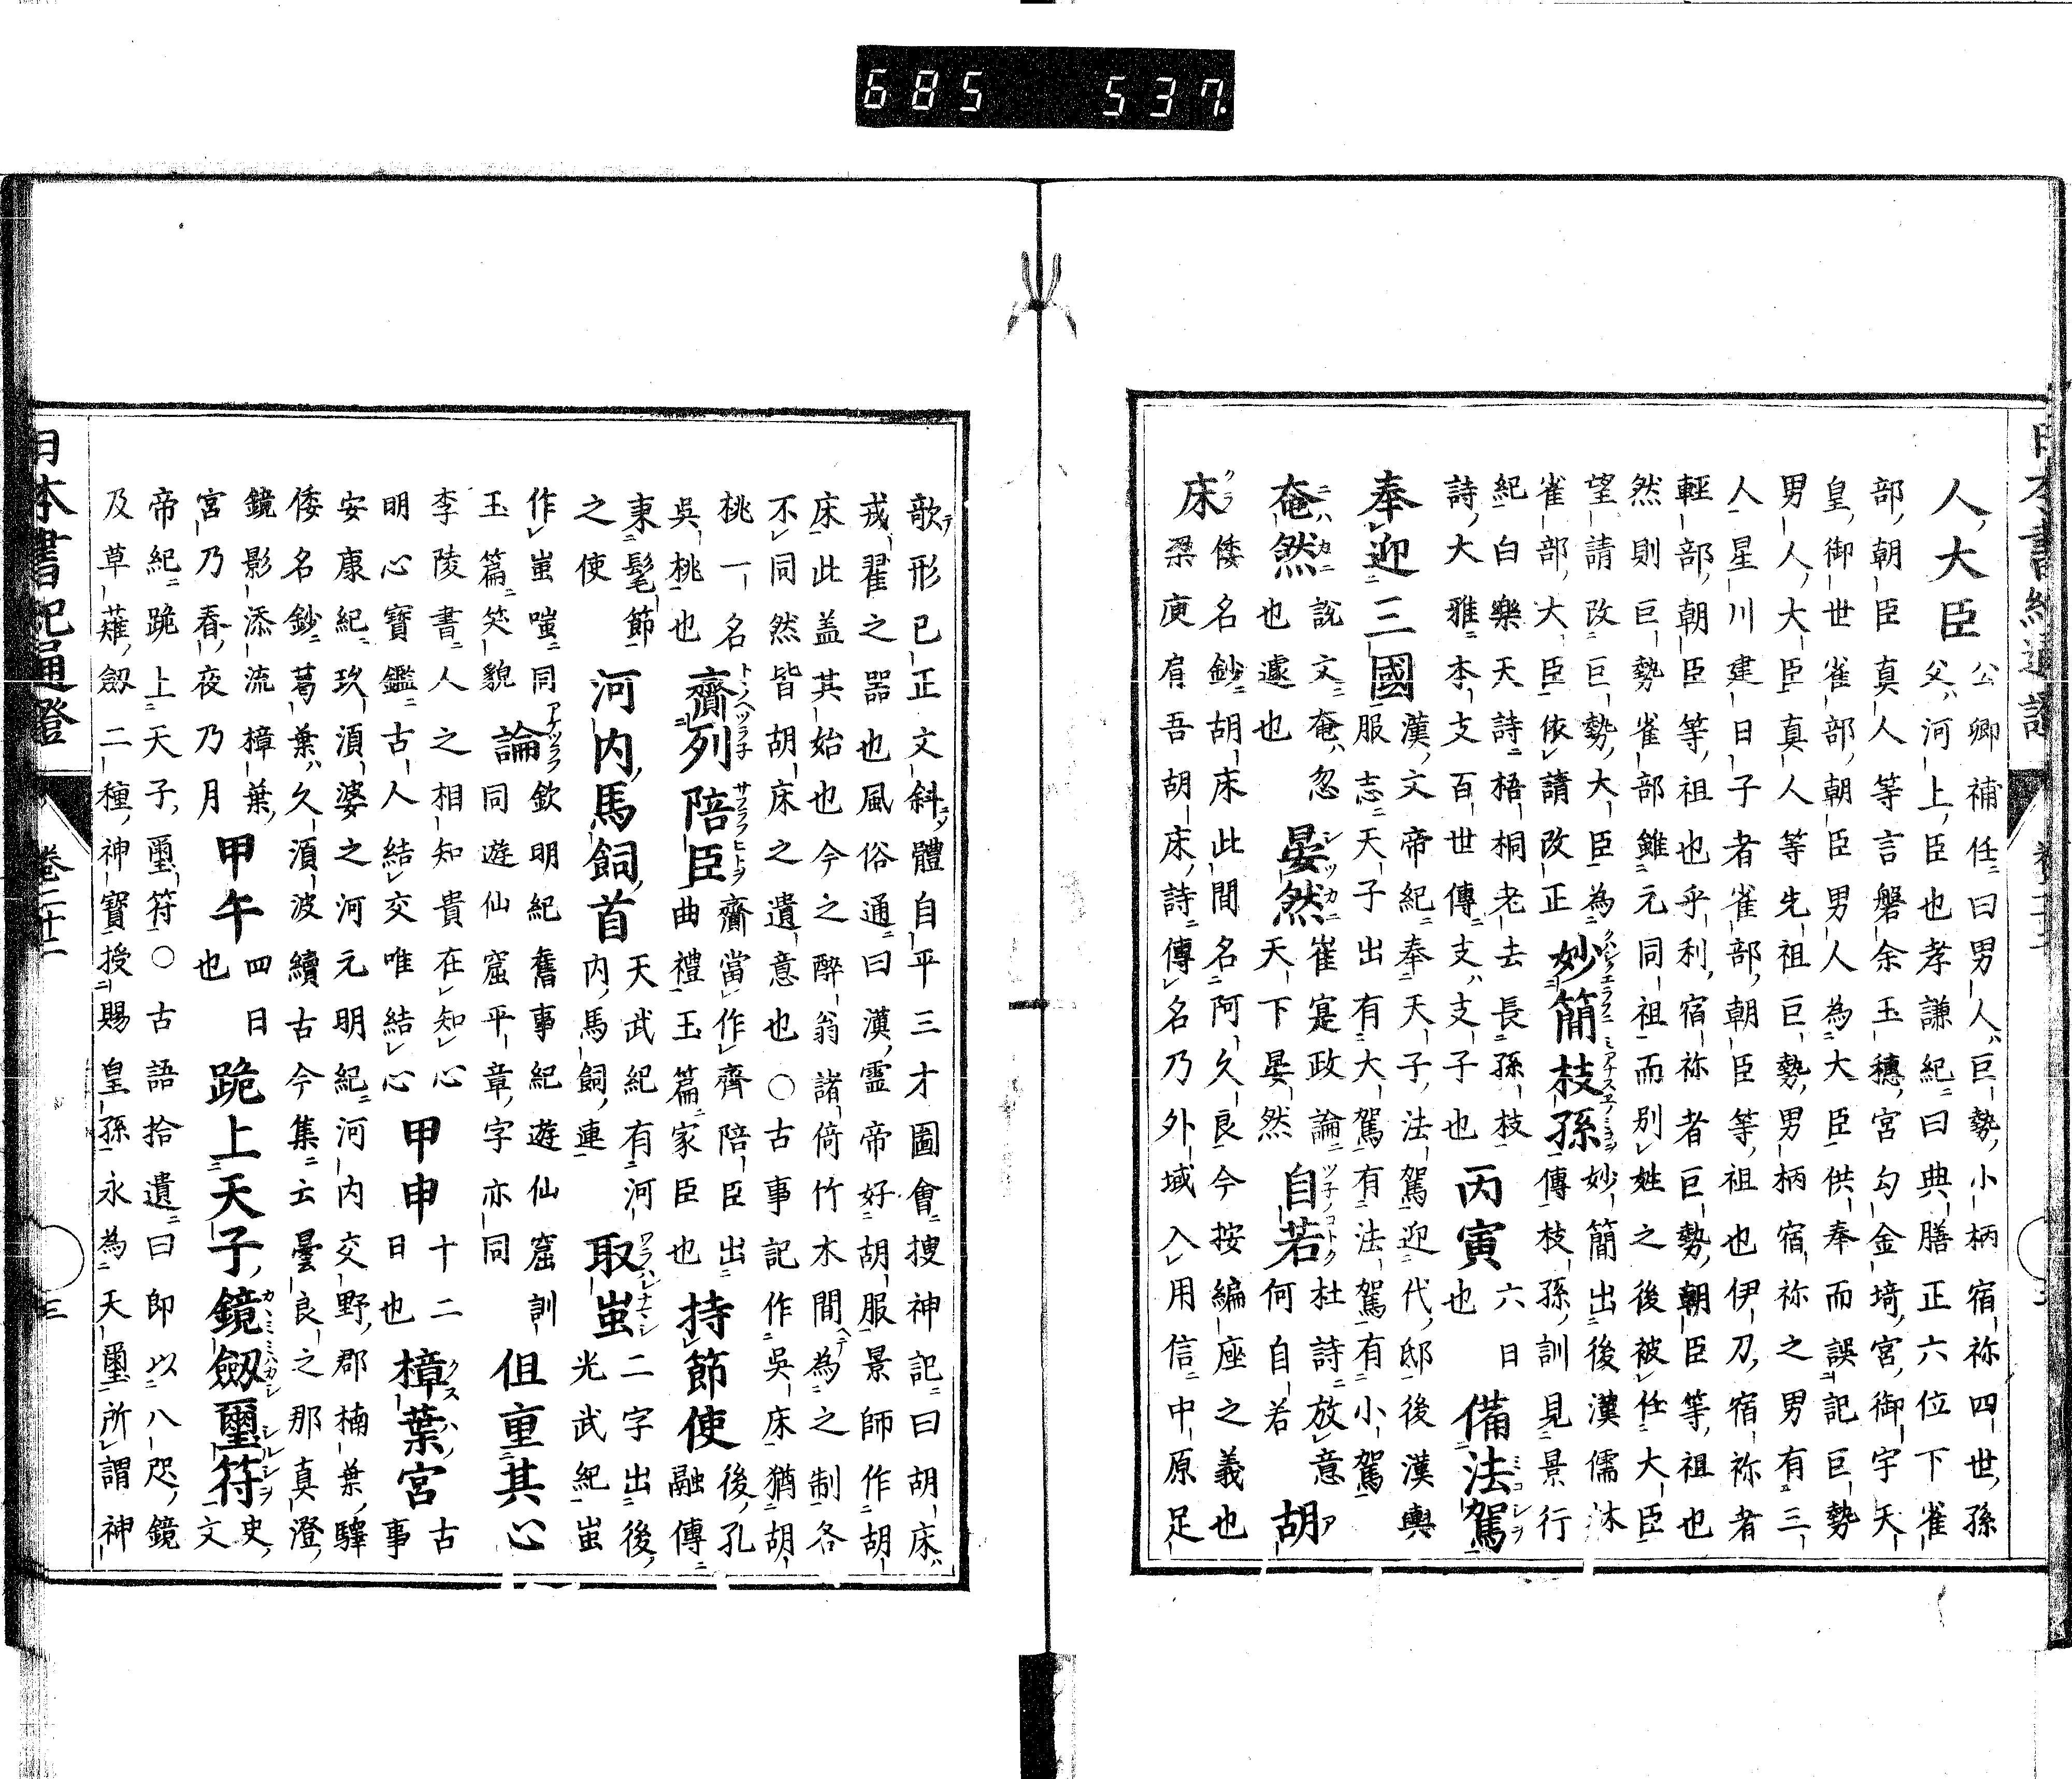 人大臣
公卿補任曰男人巨勢小柄宿祢四世孫
父河上臣也孝謙紀曰典膳正六位下雀
部朝臣真人等言磐余玉穗宮勾金埼宮御宇天
皇御世雀部朝臣男人為大臣供奉而誤記巨勢
男人大臣真人等先祖巨勢男柄宿祢之男有三
人星川建日子者雀部朝臣等祖也伊刀宿祢者
輕部朝臣等祖也乎利宿祢者巨勢朝臣等祖也
然則巨勢雀部雖元同祖而別姓之後被任大臣
望請改巨勢大臣為
雀部大臣依請改正
妙簡枝孫
妙簡出後漢儒林
傳枝孫訓見景行
紀白樂天詩梧桐老去長孫枝
詩大雅本支百世傳支支子也
丙寅
六日
也
備法駕
奉迎三國
漢文帝紀奉天子法駕迎代邸後漢輿
服志天子出有大駕有法駕有小駕
奄然
說文奄忽
也遽也
晏然
崔寔政論
天下晏然
自若
杜詩放意
何自若
胡
床
倭名鈔胡床此間名阿久良今按編座之義也
梁庾肩吾胡床詩傳名乃外域入用信中原足
欹形已正文斜體自平三才圖會搜神記曰胡床
戎翟之器也風俗通曰漢靈帝好胡服景師作胡
床此盖其始也今之醉翁諸倚竹木間為之制各
不同然皆胡床之遺意也○古事記作吳床猶胡
桃一名
吳桃也
齊列陪臣
齊當作齊陪臣出
曲禮玉篇家臣也
持節使
後孔
融傳
東髦節
之使
河内馬飼首
天武紀有河
内馬飼連
取蚩
二字出後
光武紀蚩
作蚩嗤同
玉篇笑貌
論
欽明紀舊事紀遊仙窟訓
同遊仙窟平章字亦同
但重其心
李陵書人之相知貴在知心
明心寶鑑古人結交唯結心
甲申
十二
日也
樟葉宮
古
事
安康紀玖湏婆之河元明紀河内交野郡楠葉驛
倭名鈔葛葉久湏波續古今集云曇良之那真澄
鏡影添流樟葉
宮乃春夜乃月
甲午
四日
也
跪上天子鏡劔璽符
史
文
帝紀跪上天子璽符○古語拾遺曰即以八咫鏡
及草薙劔二種神寶授賜皇孫永為天璽所謂神
日本書紀通證
卷二十二
三
685 537